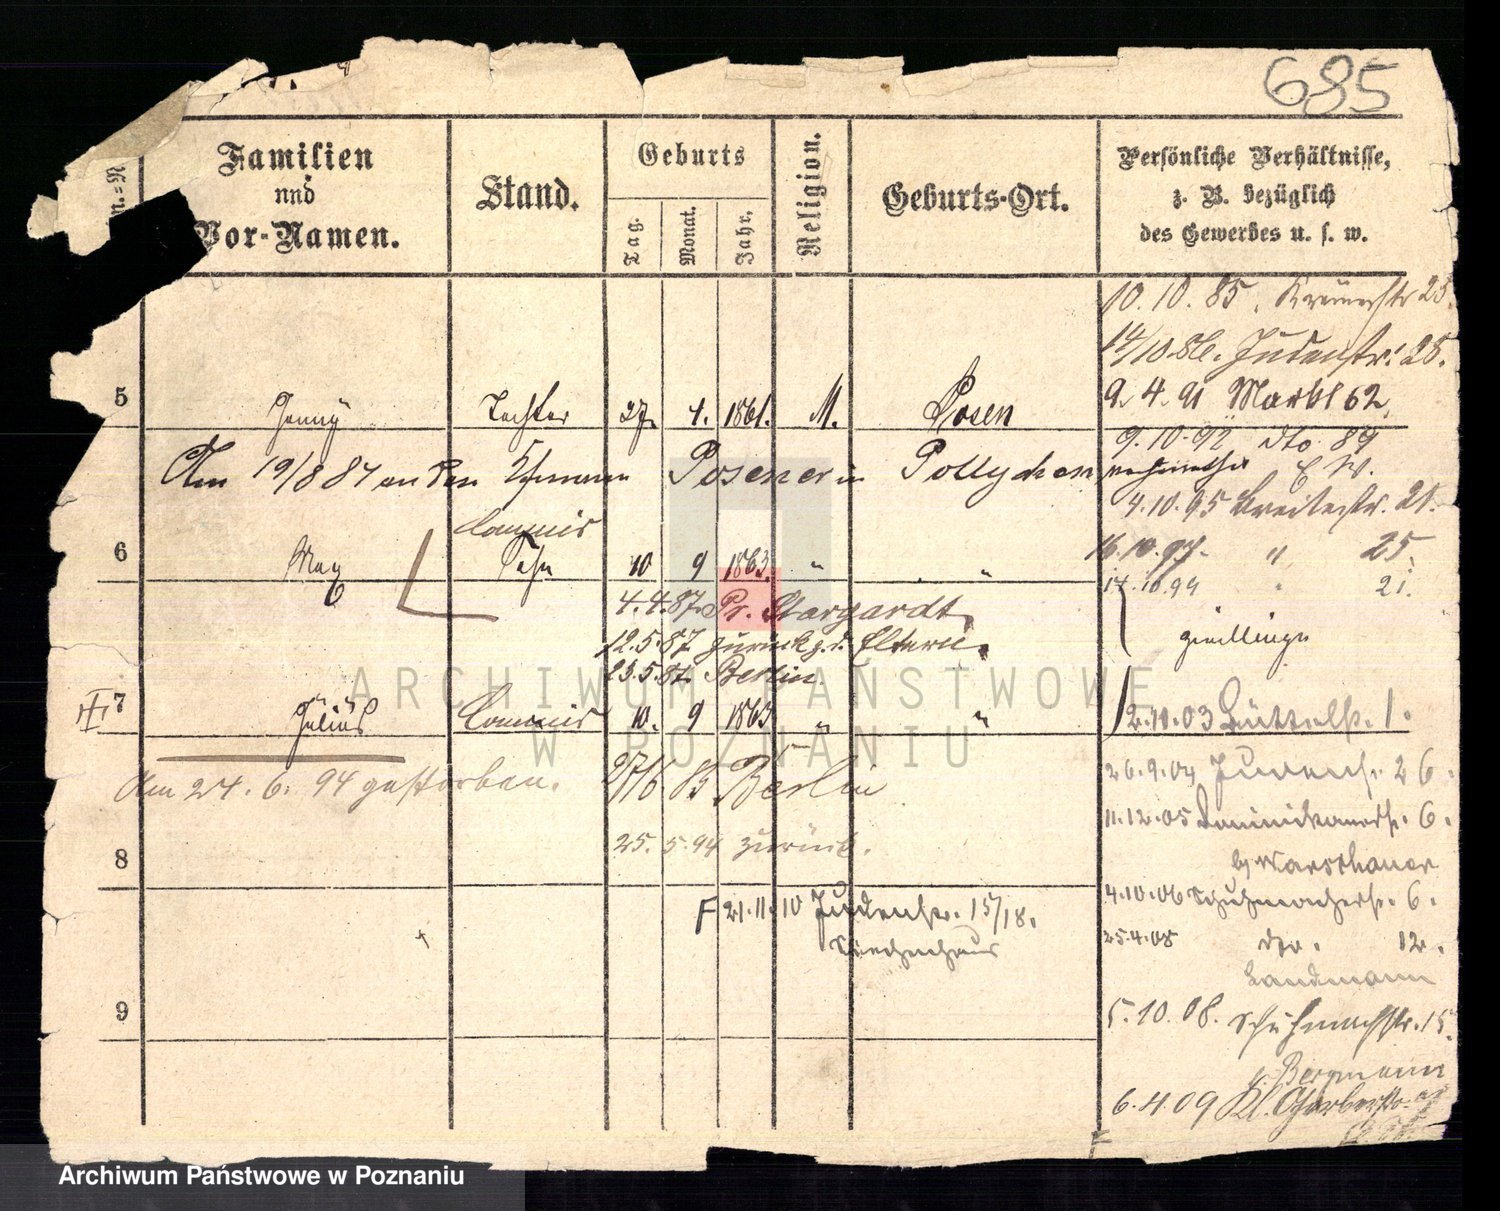 685
Familien
und
Vor-Namen.
Stand.
Geburts
Tag.
Monat.
Jahr.
Religion.
Geburts-Ort.
Persönliche Verhältnisse,
z. B. bezüglich
des Gewerbes u. s. w.
10. 10. 85. Krämerstr 23.
14/10. 86. Judenstr. 28.
9. 4. 91 Markt 62
5 Jenny Tochter 27. 4. 1861. M. Posen
9. 10. 92 dto. 89
Am 19/8 84 an den Posener in Pollychen
4. 10. 95 Breitestr. 21.
Commis
6 Max Sohn 10 9 1863. " "
16. 10. 97. " 25.
14. 10. 99 " 21.
4. 4. 87. Pr. Stargardt.
12. 5. 87. zurück z. d. Eltern.
23. 5. 87. Berlin.
Zwillinge
7 Julius Commis 10. 9 1863 " "
2. 10. 03 Büttelstr. 1.
Am 24. 6. 94 gestorben.
27/6 85 Berlin
26. 9. 04 Judenstr. 26.
11. 12. 05 Dominikanerstr. 6.
25. 5. 94 zurück.
b/ Warschauer
8
4. 10. 06 Schuhmacherstr. 6.
F 21. 11. 10 Judenstr. 15/18.
Siechenhaus
25. 4. 08 dto. 12.
Landmann
9
5. 10. 08. Schuhmachstr. 15.
Bergmann
6. 4. 09 Kl. Gerberstr.
ARCHIWUM PAŃSTWOWE
W POZNANIU
Archiwum Państwowe w Poznaniu